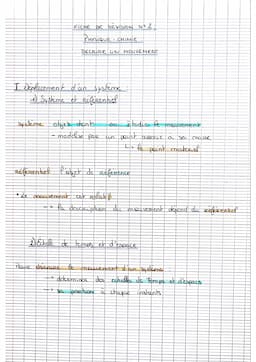 FICHE DE RÉVISION N°2
PHYSIQUE - CHIMIE
DÉCRIRE UN MOUVEMENT
I. Déplacement d'un système
1) Système et référentiel
système objet dont on étudie le mouvement
- modélisé par un point associé à sa masse
↳ le point matériel
référentiel l'objet de référence
• Le mouvement est relatif
→ la description du mouvement dépend du référentiel
2) Échelle de temps et d'espace
Pour décrire le mouvement d'un système
→ déterminer des échelles de temps et d'espace
→ sa position à chaque instants